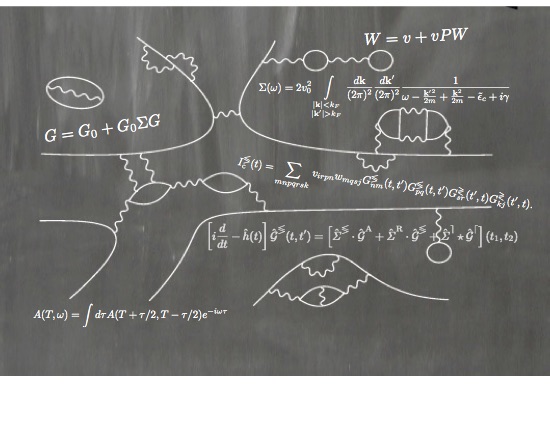 W = v + vPW
Σ(ω) = 2v₀² ∫_{|k|<k_F |k'|>k_F} dk/(2π)² dk'/(2π)² 1/(ω − k'²/2m + k²/2m − ε̃_c + iγ)
G = G₀ + G₀ΣG
I_c^≶(t) = ∑_{mnpqrsk} v_{irpn} w_{mqsj} G^≶_{nm}(t, t')G^≶_{pq}(t, t')G^≷_{sr}(t', t)G^≷_{kj}(t', t).
[i d/dt − ĥ(t)] 𝒢̂^≶(t, t') = [Σ̂^≶ · 𝒢̂^A + Σ̂^R · 𝒢̂^≶ + Σ̂^⌉ ⋆ 𝒢̂^⌈] (t₁, t₂)
A(T, ω) = ∫ dτ A(T + τ/2, T − τ/2)e^{−iωτ}